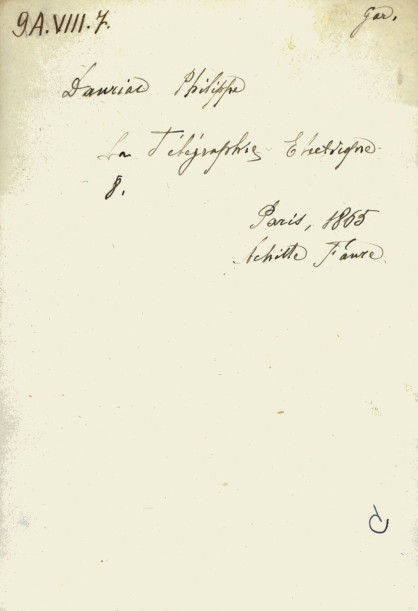 9A.VIII.7.
Gar.
Dauriac Philippe
La Télégraphie Electrique
8.
Paris, 1865
Achille Faure.